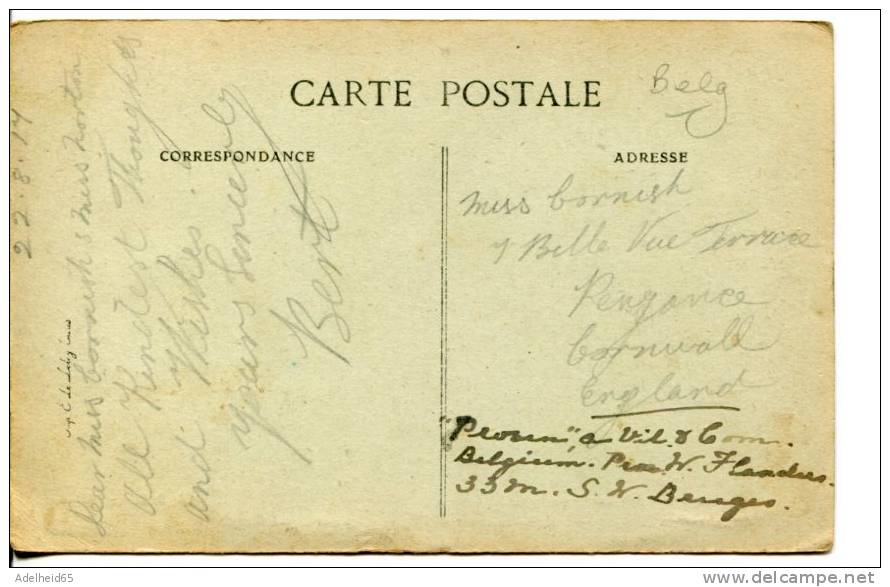 CARTE POSTALE
Belg
CORRESPONDANCE
ADRESSE
22.8.17
Dear Miss Cornish & Miss Norton
All Kindest Thoughts
and Wishes.
Yours Sincerely
Bert
Miss Cornish
7 Belle Vue Terrace
Penzance
Cornwall
England
"Proven" a Vil. & Com.
Belgium. Prov. W. Flanders.
33 m. S. W. Bruges.
Adelheid65
delcampe.net